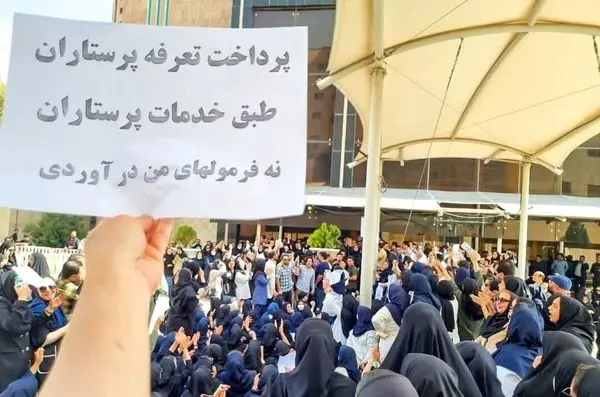 پرداخت تعرفه پرستاران
طبق خدمات پرستاران
نه فرمولهای من درآوردی